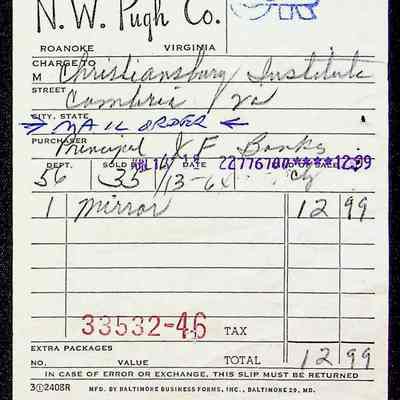 N. W. Pugh Co.
OK
ROANOKE VIRGINIA
CHARGE TO
M Christiansburg Institute
STREET Cambria Va
CITY, STATE
→ MAIL ORDER ←
PURCHASER Principal J F Banks
DEPT. SOLD DATE
22776700****12.99
56 35 13-64
1 Mirror 12 99
33532-46 TAX
EXTRA PACKAGES
NO. VALUE TOTAL 12 99
IN CASE OF ERROR OR EXCHANGE, THIS SLIP MUST BE RETURNED
3①2408R MFD. BY BALTIMORE BUSINESS FORMS, INC., BALTIMORE 29, MD.